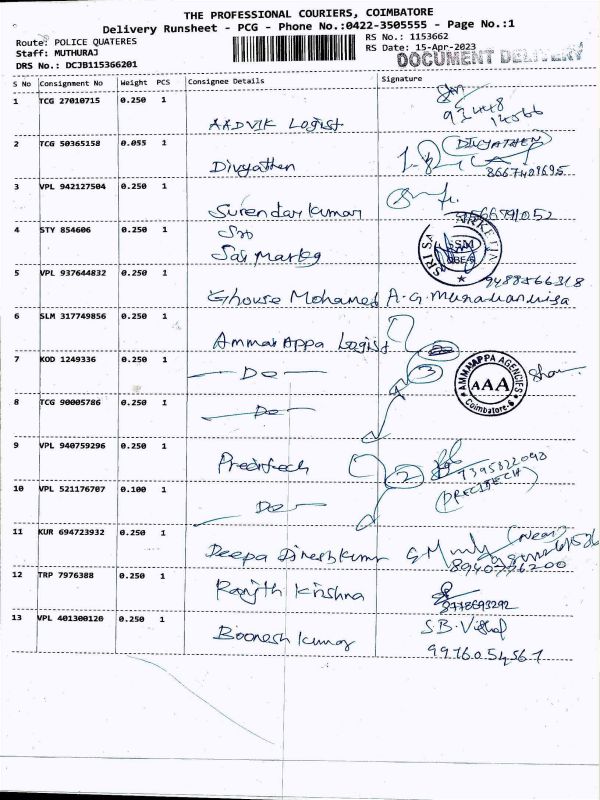 THE PROFESSIONAL COURIERS, COIMBATORE
Delivery Runsheet - PCG - Phone No.:0422-3505555 - Page No.:1
Route: POLICE QUATERES
RS No.: 1153662
Staff: MUTHURAJ
RS Date: 15-Apr-2023
DRS No.: DCJB115366201
DOCUMENT DELIVERY
S No Consignment No Weight PCS Consignee Details Signature
1 TCG 27010715 0.250 1 AADVIK Logist
2 TCG 50365158 0.055 1 Divyathen DIVYATHEN
8667409695
3 VPL 942127504 0.250 1 Surendar kumar
4 STY 854606 0.250 1 Sri
Sai Markg
5 VPL 937644832 0.250 1 Ghouse Mohamed
9488566318
6 SLM 317749856 0.250 1 Ammai Appa Logist
7 KOD 1249336 0.250 1 — Do — 3
AMMAIAPPA AGENCIES
AAA
Coimbatore-6
8 TCG 90005786 0.250 1 — Do —
9 VPL 940759296 0.250 1 Precitech 2
7395822090
(PRECITECH)
10 VPL 521176707 0.100 1 — Do —
11 KUR 694723932 0.250 1 Deepa Dineshkumar
8940796200
12 TRP 7976388 0.250 1 Ranjith Krishna
8778693292
13 VPL 401300120 0.250 1 Boonesh kumar S.B.
9976054567